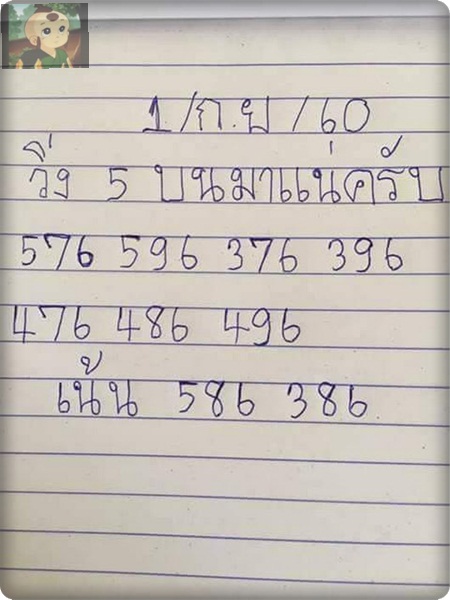 1/ก.ย/60
วิ่ง 5 บนมาแน่ครับ
576 596 376 396
476 486 496
เน้น 586 386